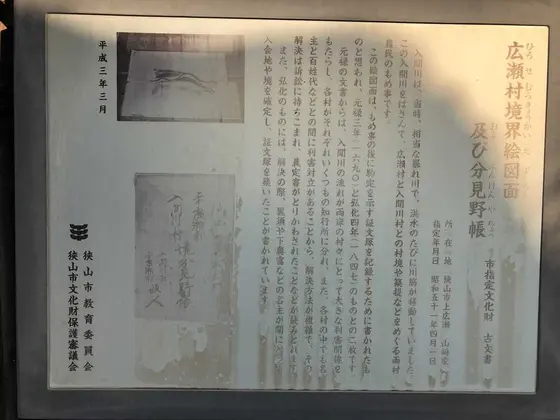 広瀬村境界絵図面
及び分見野帳
市指定文化財　古文書
所在地　狭山市上広瀬　山﨑家
指定年月日　昭和五十一年四月一日
入間川は、当時、相当な暴れ川で、洪水のたびに川筋が移動していました。
この入間川をはさんで、広瀬村と入間川村との村境や築堤などをめぐる両村
農民のもめ事です。
この絵図面は、もめ事の後に勘定を示す証文塚を記録するために書かれたも
のと思われ、元禄三年(一六九〇)と弘化四年(一八四七)のものとの二枚です。
元禄の文書からは、入間川の流れが両岸の村々にとって大きな利害関係を
もたらし、各村がそれぞれいくつもの知行所に分れ、また、各村の中でも名
主と百姓代などとの間に利害対立があることから、解決方法が複雑で、その
解決は訴訟に持ちこまれ、裁定書がとりかわされたことなどが読みとれます。
また、弘化のものには、解決の際、
などの名主が間に
入会地や境を確定し、証文塚を築いたことが書かれています。
平成三年三月
狭山市教育委員会
狭山市文化財保護審議会